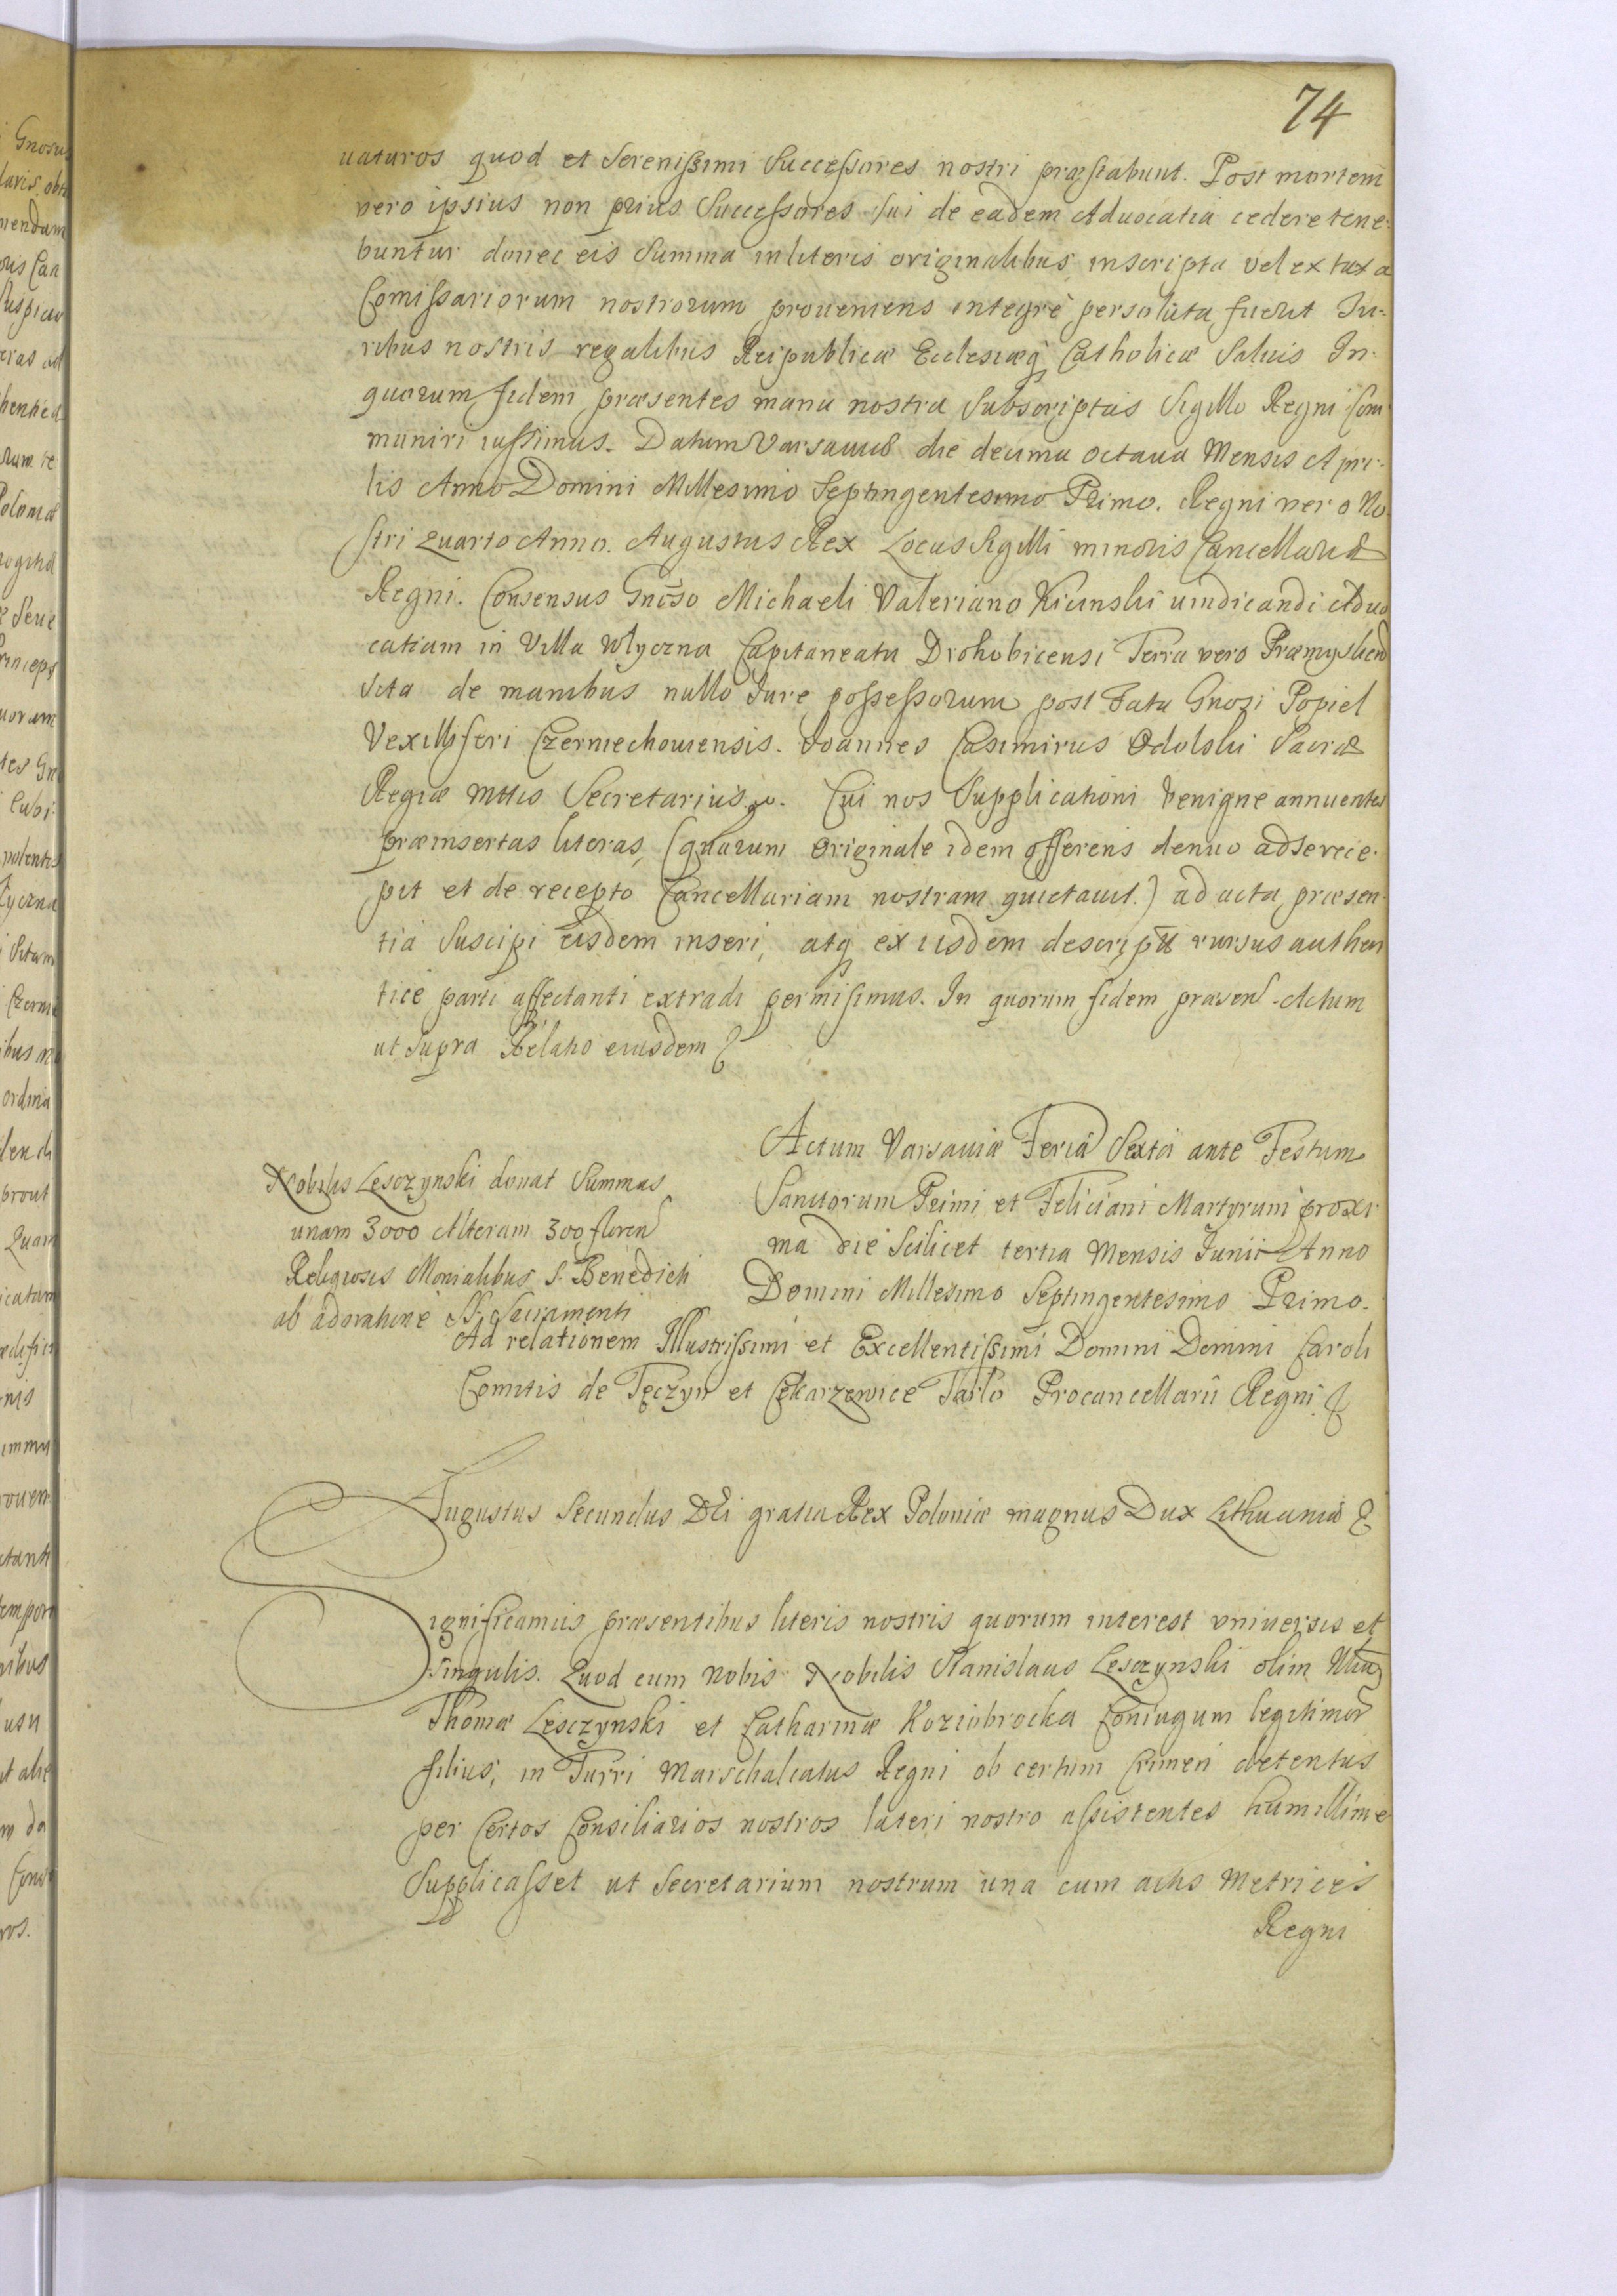 74
uaturos quod et Serenissimi Successores nostri præstabunt. Post mortem
vero ipsius non prius Successores sui de eadem Aduocatia cedere tene-
buntur donec eis Summa in literis originalibus inscripta vel ex taxa
Comissariorum nostrorum proueniens integrè persoluta fuerit Iu-
ribus nostris regalibus Reipublicæ Ecclesiæq; Catholicæ Saluis In
quorum fidem præsentes manu nostra Subscriptas Sigillo Regni com
muniri iussimus. Datum Varsauiæ die decima octaua Mensis Apri-
lis Anno Domini Millesimo Septingentesimo Primo. Regni vero No
stri Quarto Anno. Augustus Rex Locus Sigilli minoris Cancellariæ
Regni. Consensus Gnoso Michaeli Valeriano Kicinski uindicandi Aduo
catiam in Villa Wlyczna Capitaneatu Drohobicensi Terra vero Præmyslien
sita de manibus nullo Iure possessorum post Fata Gnosi Popiel
Vexilliferi Czerniechouiensis. Ioannes Casimirus Odolski Sacræ
Regiæ Mttis Secretarius. Cui nos Supplicationi benigne annuentes
præinsertas literas, (quarum originale idem offerens denuo ad se rece-
pit et de recepto Cancellariam nostram quietauit.) ad acta præsen
tia Suscipi eisdem inseri, atq; ex iisdem descriptū rursus authen
tice parti affectanti extradi permisimus. In quorum fidem præsen. Actum
ut Supra Relatio eiusdem
Nobilis Lesczynski donat Summas
unam 3000 Alteram 300 floren
Religiosis Monialibus S. Benedicti
ab adoratione SS. Sacramenti
Actum Varsauiæ Feriâ Sextâ ante Festum
Sanctorum Primi et Feliciani Martyrum proxi
ma die Scilicet tertia Mensis Iunii Anno
Domini Millesimo Septingentesimo Primo.
Ad relationem Illustrissimi et Excellentissimi Domini Domini Caroli
Comitis de Tęczyn et Czekarzewice Tarło Procancellarii Regni
Augustus Secundus Dei gratia Rex Poloniæ magnus Dux Lithuaniæ
Significamus præsentibus literis nostris quorum interest vniuersis et
singulis. Quod cum Nobis Nobilis Stanislaus Lesczynski olim
Thomæ Lesczynski et Catharinæ Koziobrocka Coniugum legitimor
filius, in Turri Marschalcatus Regni ob certum Crimen detentus
per Certos Consiliarios nostros lateri nostro assistentes humillime
Supplicasset ut Secretarium nostrum una cum actis Metrices
Regni